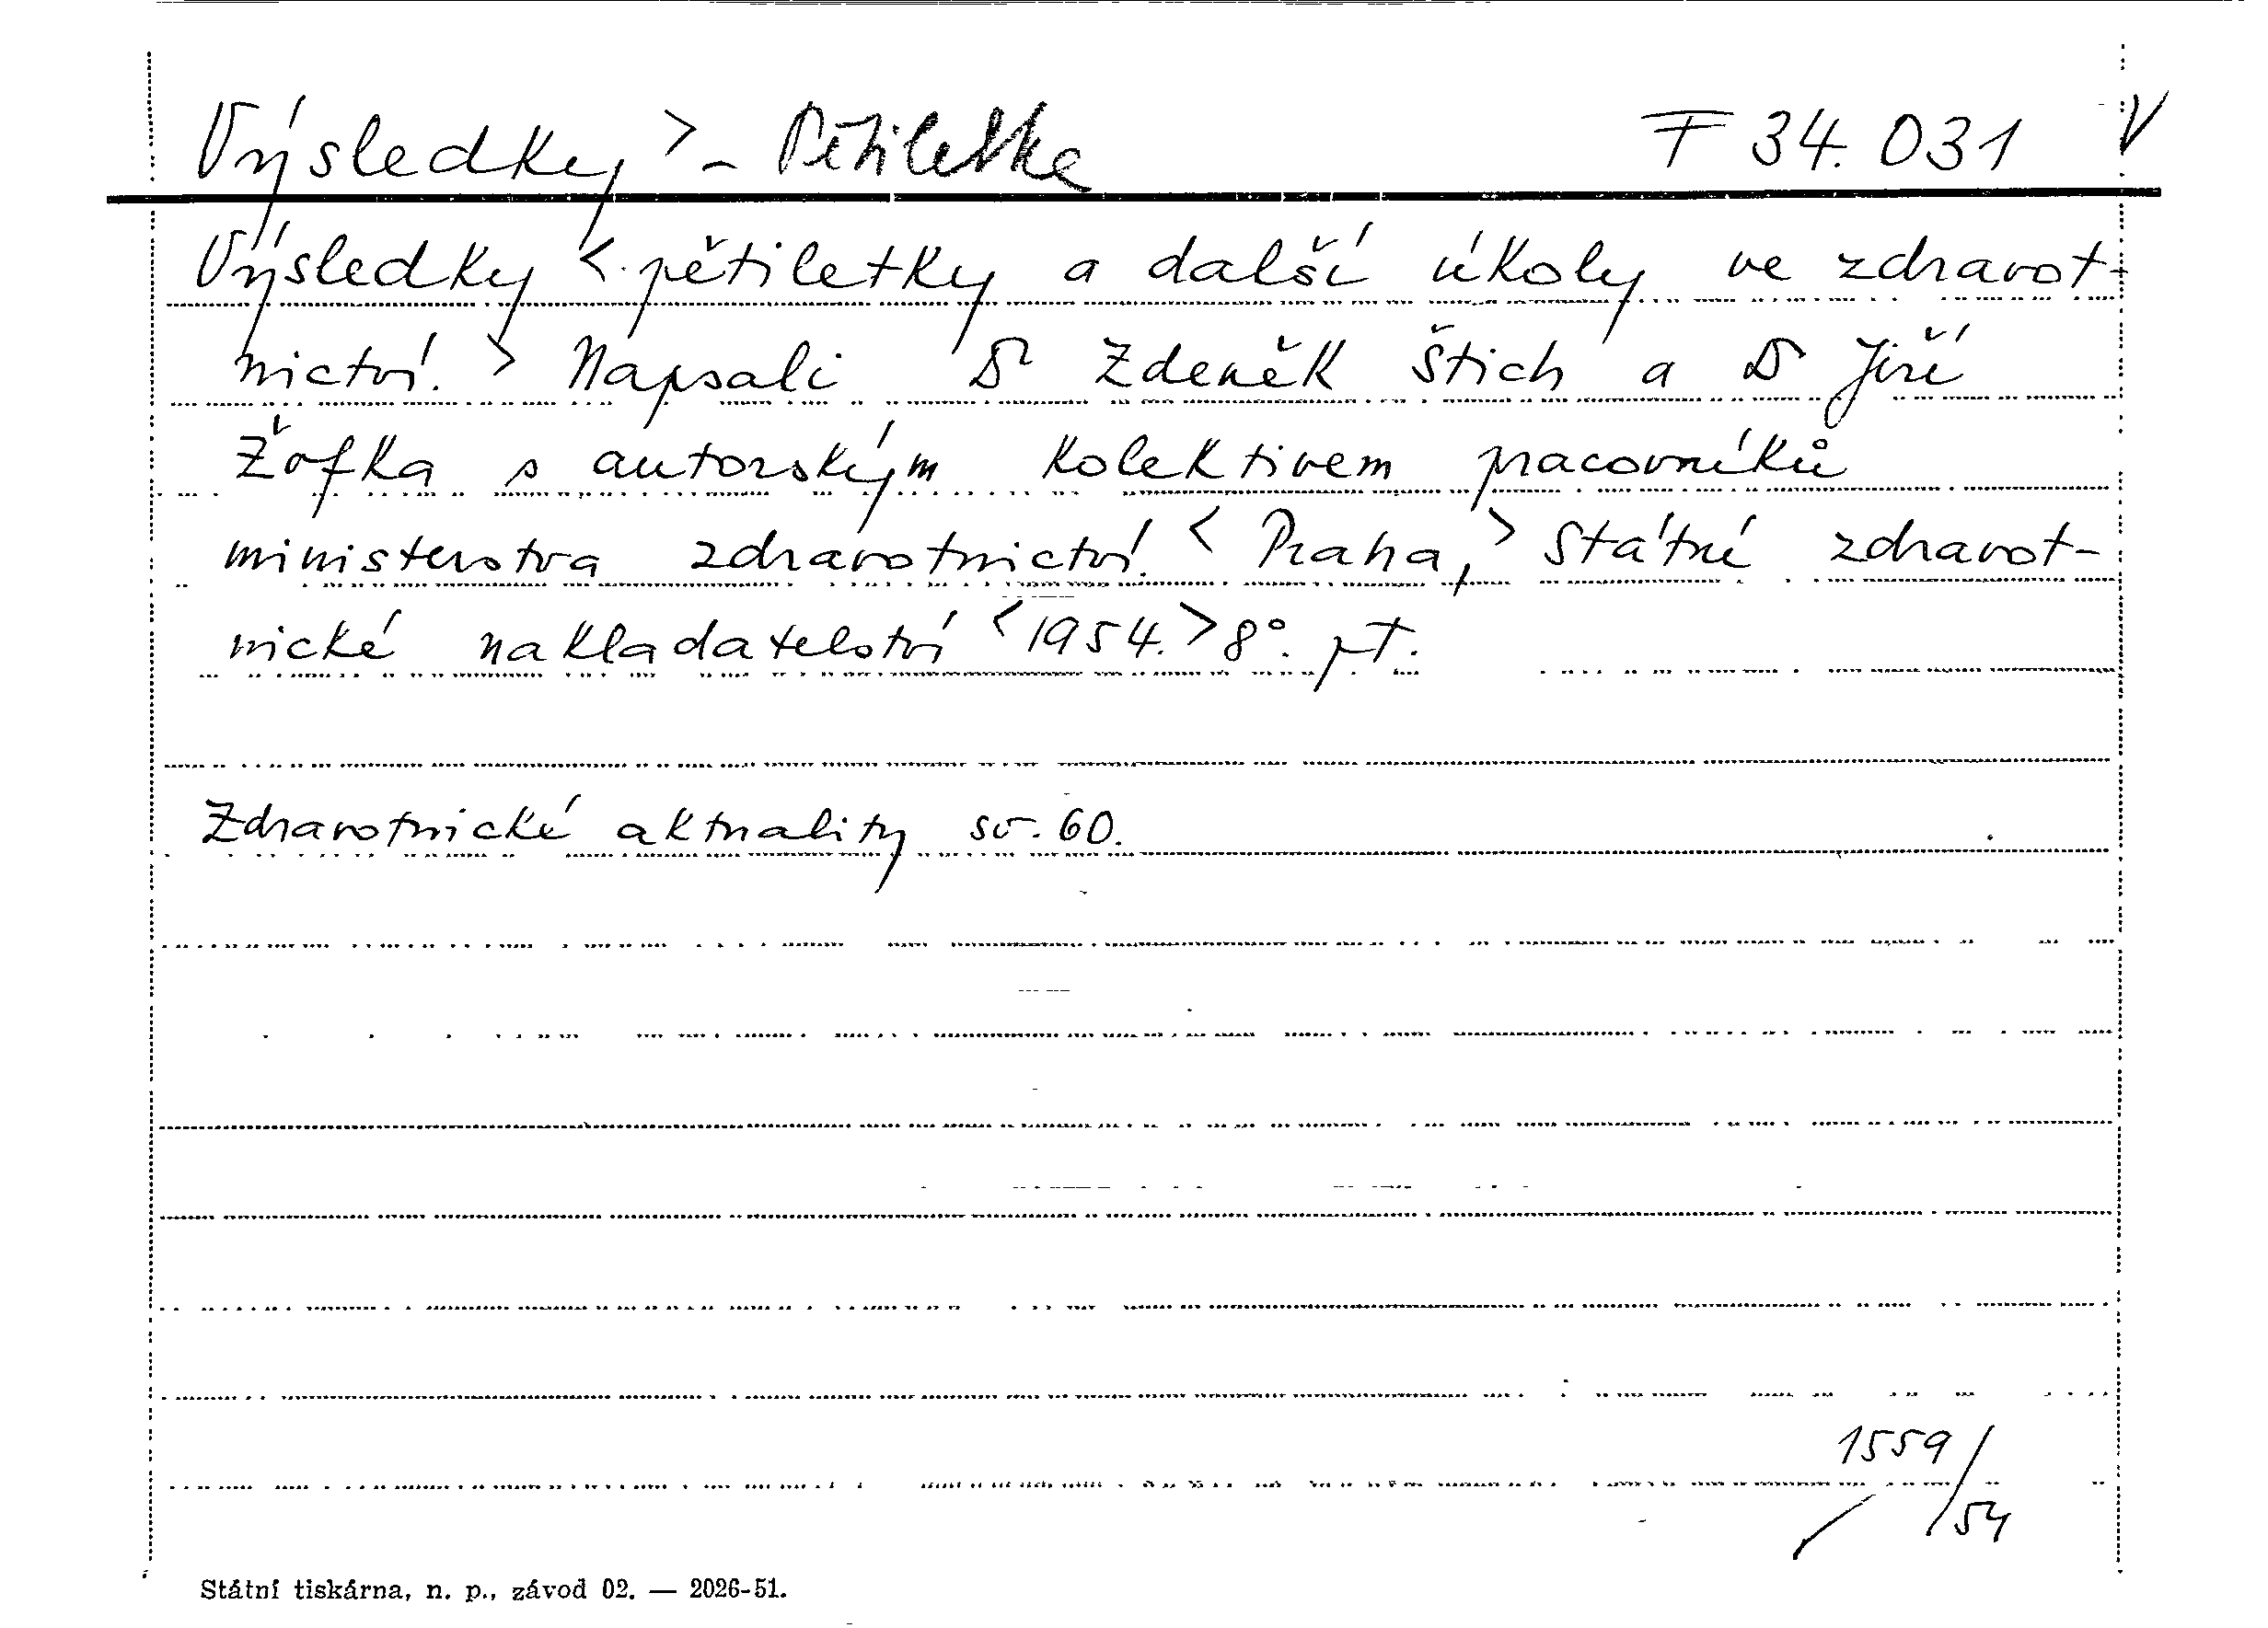 Výsledky > - Pětiletka F 34.031 V
Výsledky < pětiletky a další úkoly ve zdravot-
nictví. > Napsali Dr Zdeněk Štich a Dr Jiří
Žofka s autorským kolektivem pracovníků
ministerstva zdravotnictví. < Praha, > Státní zdravot-
nické nakladatelství < 1954. > 8°. pT.
Zdravotnické aktuality sv. 60.
1559/
54
Státní tiskárna, n. p., závod 02. — 2026-51.